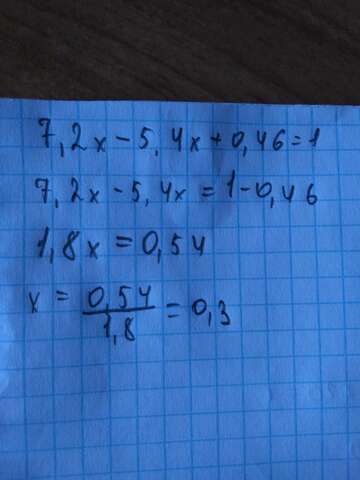 7,2x-5,4x+0,46=1
7,2x-5,4x=1-0,46
1,8x=0,54
x=0,54/1,8=0,3